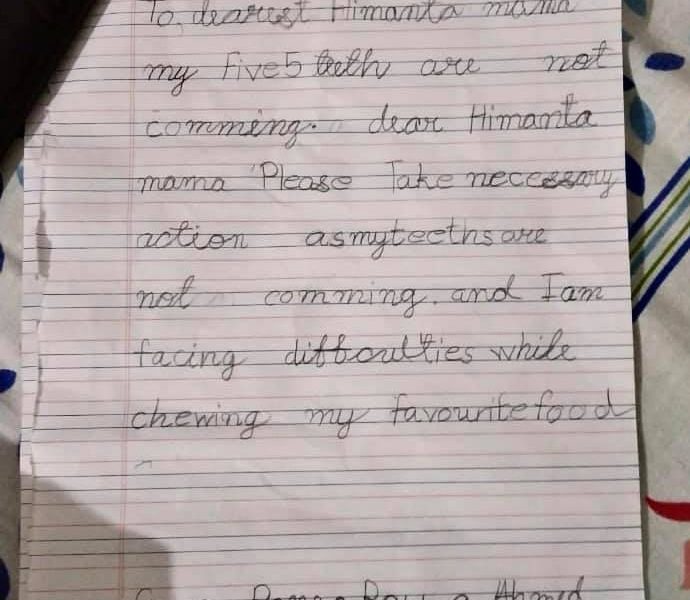 To, dearest Himanta mama
my Five5 teeth are not
comming. dear Himanta
mama Please Take necessary
action asmyteethsare
not comming. and I am
facing difficulties while
chewing my favourite food
Ahmed